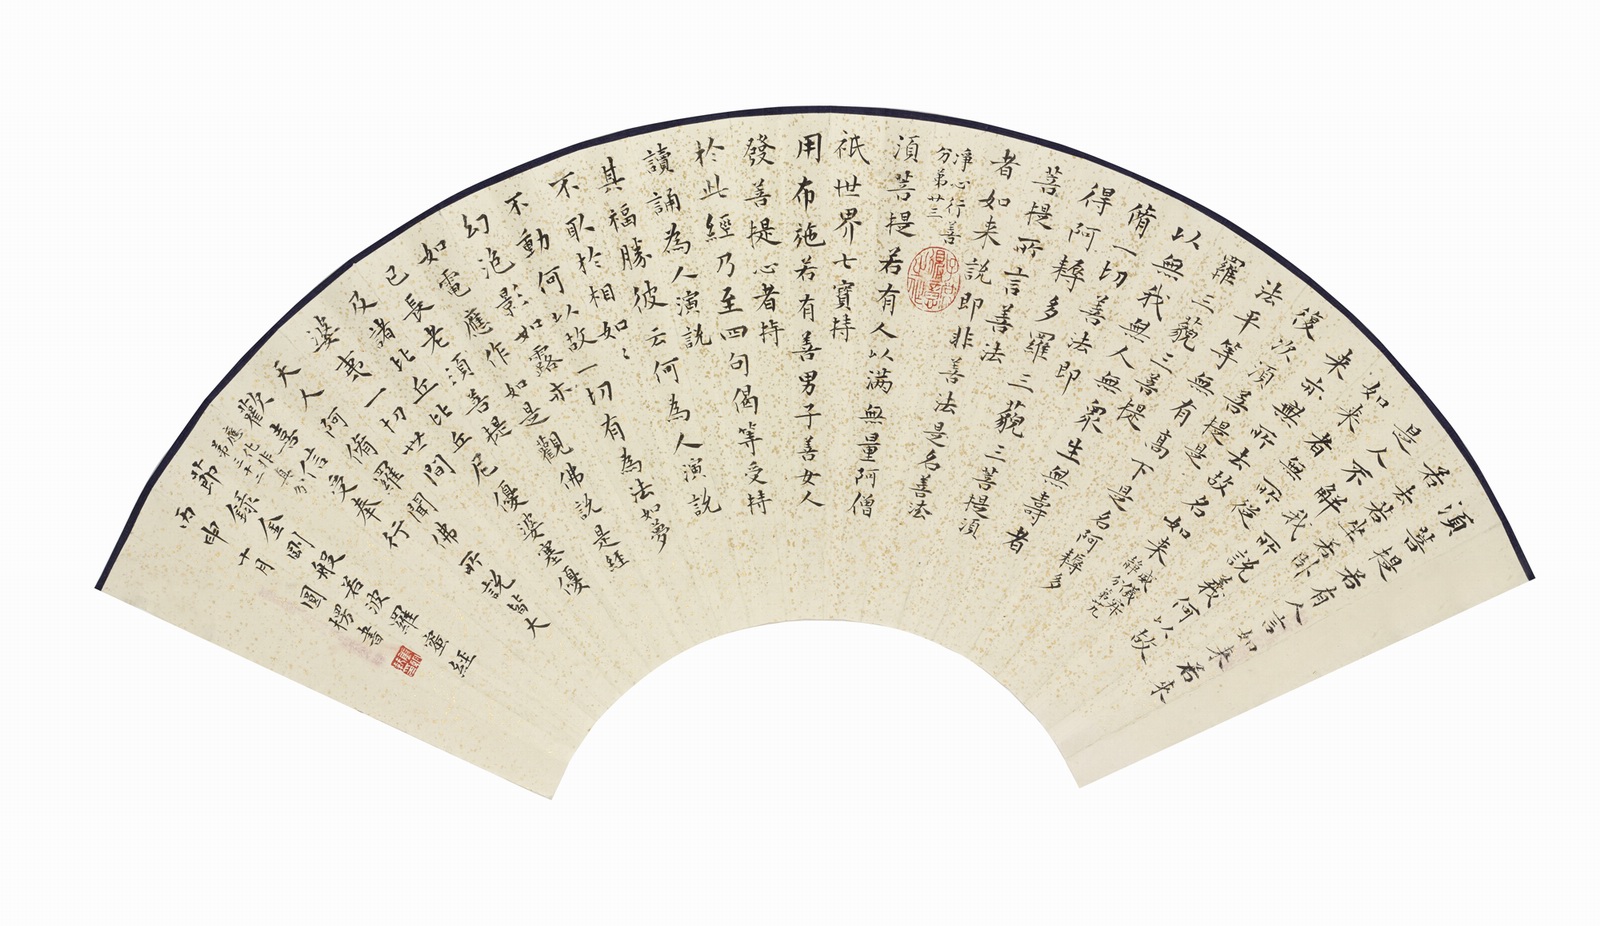 須菩提若有人言如来若来
若去若坐若卧
是人不解我所說義何以故
如来者無所從
来亦無所去故名如来
威儀寂
静分第廿九
復次須菩提是
法平等無有高下是名阿耨多
羅三藐三菩提
以無我無人無眾生無壽者
脩一切善法即
得阿耨多羅三藐三菩提須
菩提所言善法
者如来說即非善法是名善法
淨心行善
分第廿三
須菩提若有人以滿無量阿僧
祇世界七寶持
用布施若有善男子善女人
發菩提心者持
於此經乃至四句偈等受持
讀誦為人演說
其福勝彼云何為人演說
不取於相如〻
不動何以故一切有為法如夢
幻泡影如露亦
如電應作如是觀佛說是経
已長老須菩提
及諸比丘比丘尼優婆塞優
婆夷一切世間
天人阿脩羅聞佛所說皆大
歡喜信受奉行
應化非真分
第三十二
節録金剛般若波羅蜜経
丙申十月圓楞書